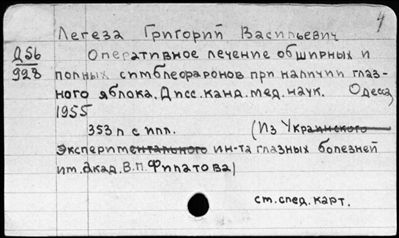 4
Легеза Григорий Васильевич
Д56
928
Оперативное лечение обширных и
полных симблефаронов при наличии глаз-
ного яблока. Дисс. канд. мед. наук. Одесса
1955
353 л с илл. (Из Украинского
экспериментального ин-та глазных болезней
им. акад. В.П. Филатова)
см. спец. карт.